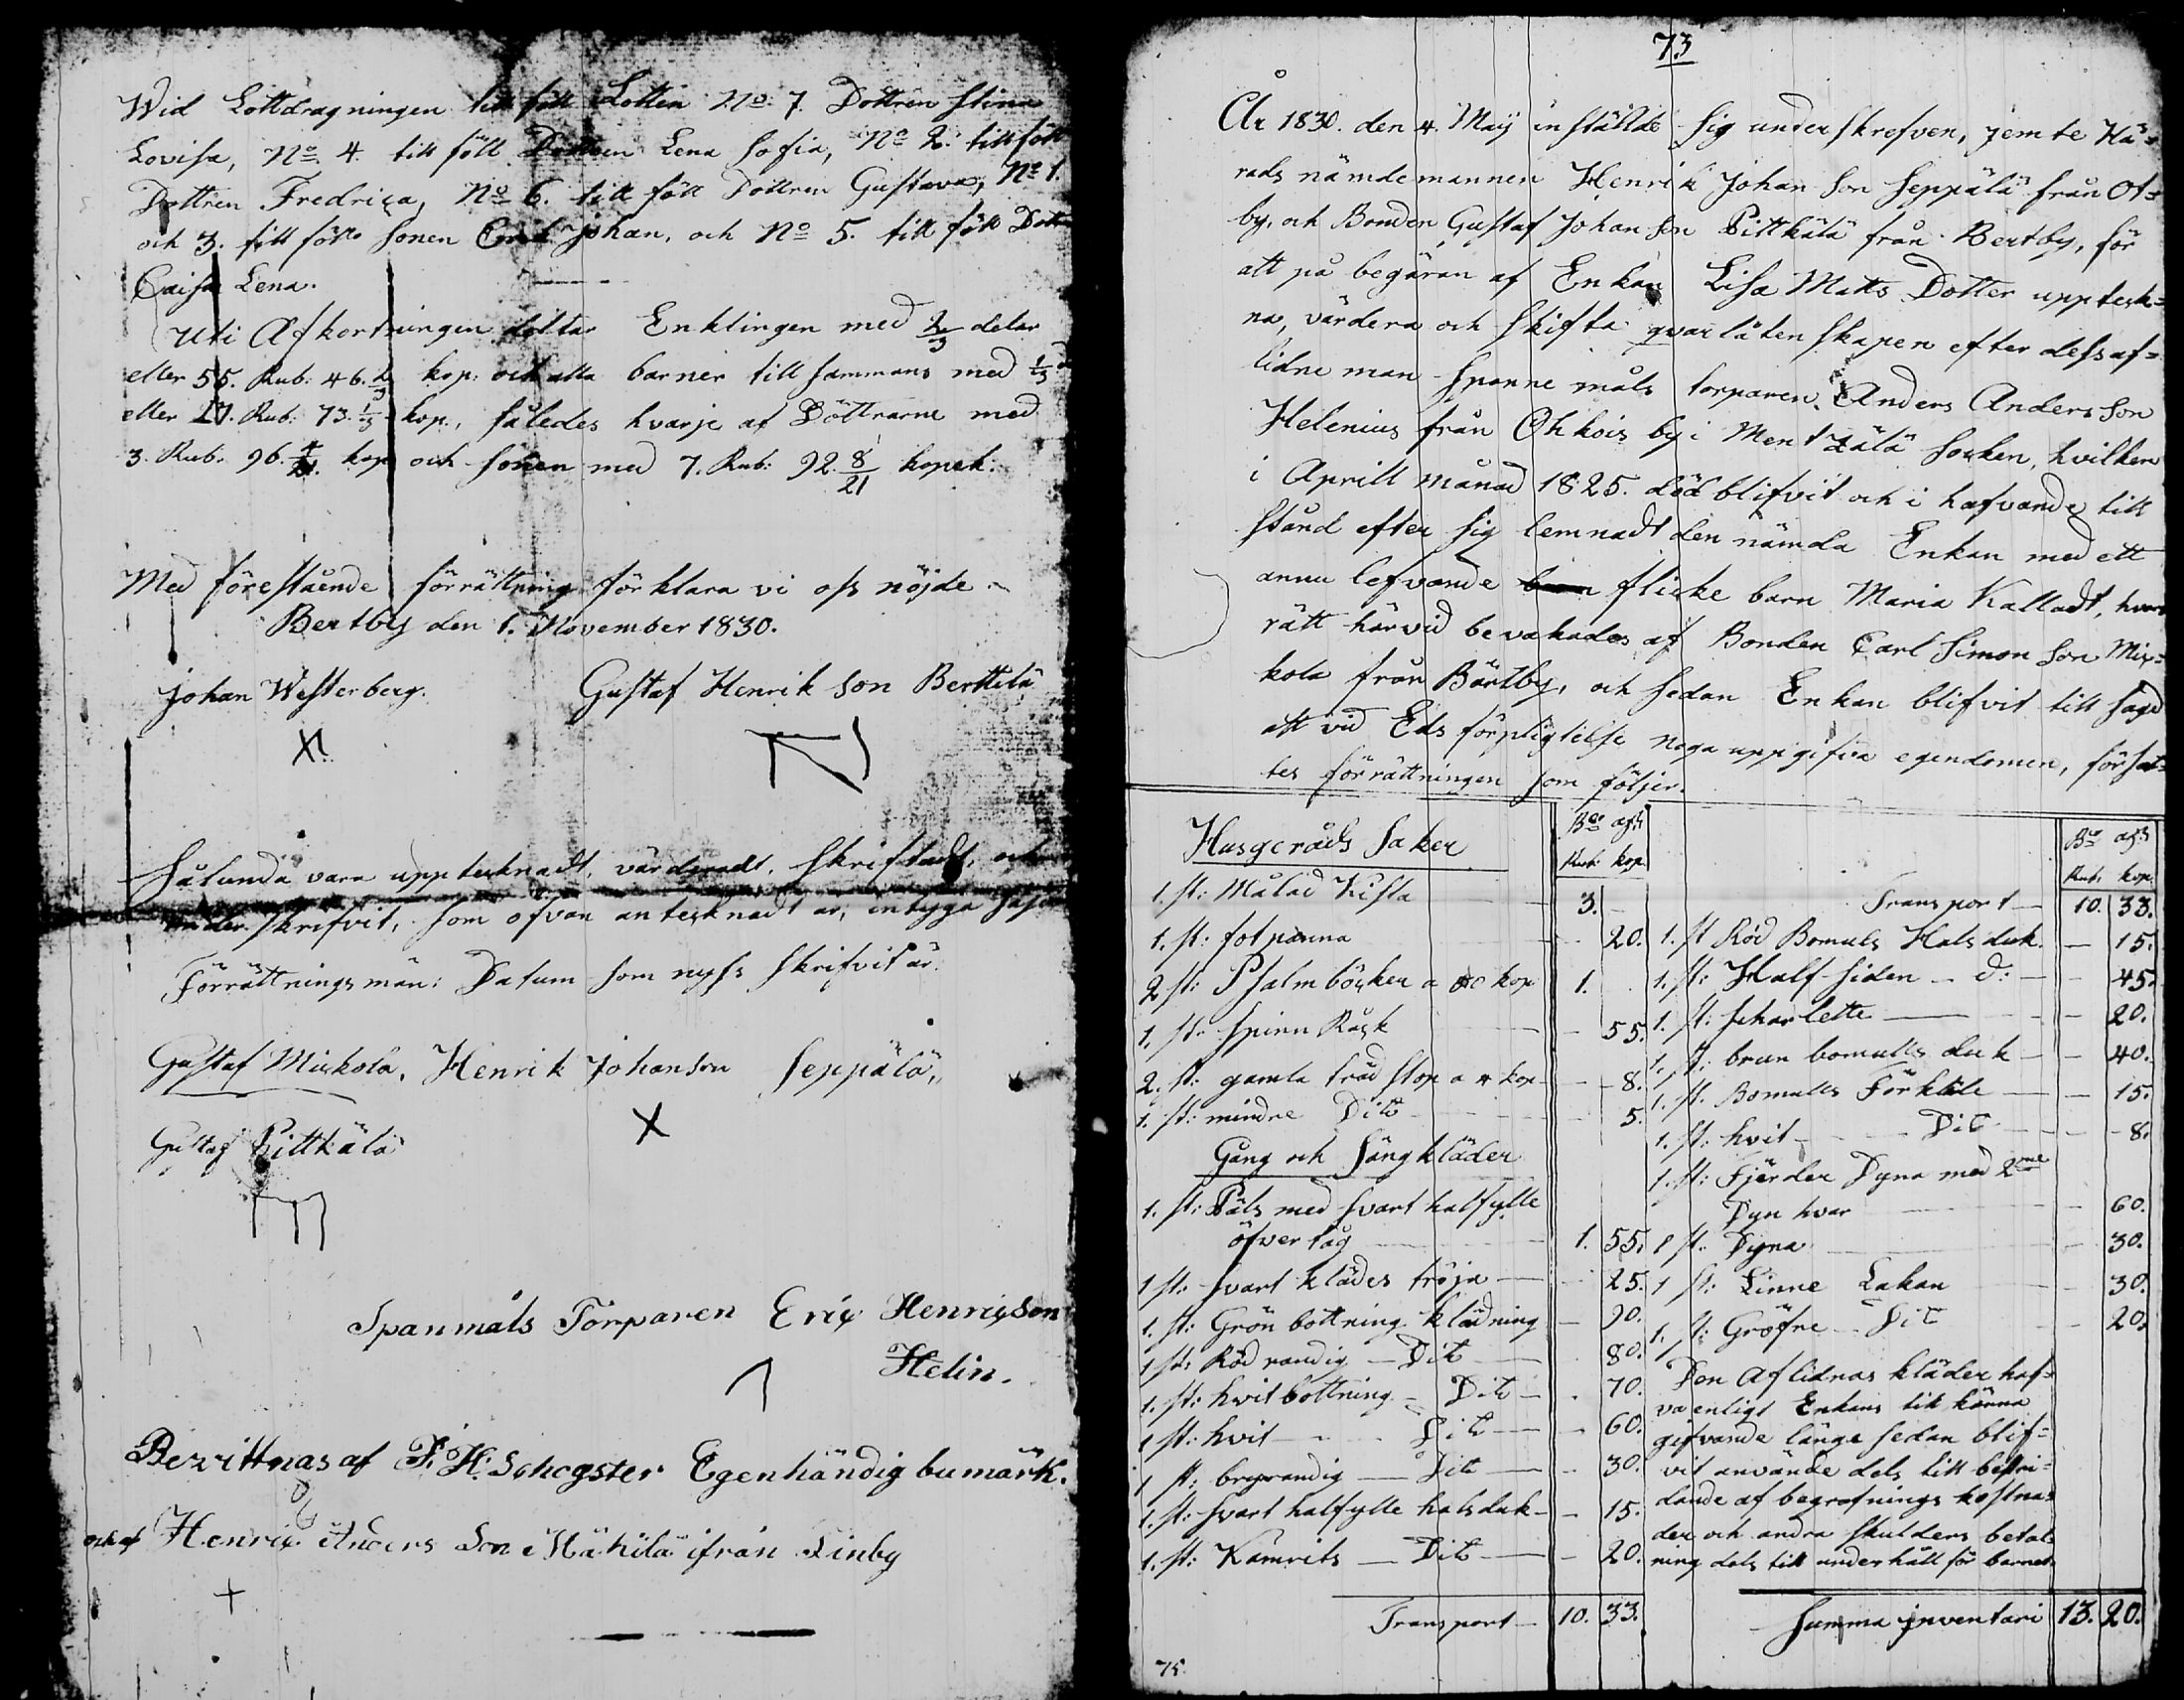 Wid Lottdragningen till föll Lotten No: 7. Dottren Stina
Lovisa, No 4. till föll Dottren Lena Sofia, No 2. till föll
Dottren Fredrica, No 6. till föll Dottren Gustava, No 1.
och 3. till föll Sonen Erik Johan, och No 5. till föll Dott
Caisa Lena.
Uti Afkortningen deltar Enklingen med 2/3 delar
eller 55. Rub: 46. 2/3 kop: och alla barnen till sammans med 1/3
eller 27. Rub: 73. 1/3 kop., således hvarje af Döttrarne med
3. Rub. 96. 4/21. kop och sonen med 7. Rub: 92. 8/21 kopek.
Med föreståënde förrättning förklara vi oss nöjde
Bertby den 1. November 1830.
Johan Westerberg. Gustaf Henrik Son Berttilä
Sålunda vara uppteknadt, värderadt, skriftadt, och
under skrifvit, som ofvan anteknadt är, intyga
Förrättnings män: Datum som nyss skrifvit är.
Gustaf Mickola, Henrik Johanson Seppälä,
X
Gustaf Pittkälä
Spanmåls Torparen Eric Henricson
Helin.
Bevittnas af F. H. Schogster Egenhändig bumärk.
och af Henric Anders Son Mäkilä ifrån Finby
+
73
År 1830. den 4. Maÿ inställde sig underskrefven, jemte Hä-
rads nämdemannen Henrik Johan Son Seppälä från Ot=
by, och Bonden Gustaf Johan Son Pittkälä från Bertby, för
att på begäran af Enkan Lisa Matts Dotter uppteck=
na, värdera och skifta qvarlåtenskapen efter dess af=
lidne man Spanne måls torparen Anders Anders Son
Helenius från Ohkois by i Mentzälä Socken, hvilken
i Aprill månad 1825. död blifvit och i hafvande till
stånd efter sig lemnadt den nämda Enkan med ett
annu lefvande flicke barn Maria Kalladt, hvars
rätt härvid bevakades af Bonden Carl Simon Son Mix=
kola från Bärtby, och sedan Enkan blifvit till sagd
att vid Eds förpligtelse noga uppgifva egendomen, försat=
tes förrättningen som följer.
Husgeråds Saker Bco ass
Rub: kop.
1. st: Målad Kista 3. –
1. st: fotpanna 20.
2 st: Psalmböcker a 50 kop 1.
1. st: Spinn Råck 55.
2. st: gamla träd stop a 4 kop 8.
1. st: mindre Dito 5.
Gång och Sängkläder
1. st: Päls med svart halfylle
öfvertåg 1. 55.
1 st: svart klädes tröja 25.
1. st: Grön bottning klädning 90.
1 st: Röd randig Dito 80.
1. st: hvit bottning Dito 70.
1 st: hvit Dito 60.
1 st: bregrandig Dito 30.
1. st: svart halfylle halsduk 15.
1. st: Kamrits Dito 20.
Transport 10. 33.
75.
Bco ass
Rub. kop
Transport 10. 33.
1. st Röd Bomuls Halsduk 15.
1. st: Half siden d: 45.
1. st: Scharlette 20.
1. st: brun bomulls duk 40.
1. st. Bomulls Förkläde 15.
1. st: hvit Dito 8.
1. st: Fjerder Dyna med 2ne
Dyn hvar 60.
1 st. Dyna 30.
1 st: Linne Lakan 30.
1. st: Gröfre Dito 20.
Den Aflidnas kläder haf=
va enligt Enkans till känna
gifvande länge sedan blif=
vit använde dels till bestri=
dande af begrafnings kostna-
der och andra skulders betal
ning dels till underhåll för barnet
Summa inventari 13. 20.